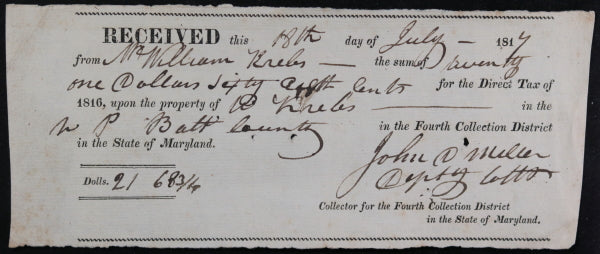 RECEIVED this 18th day of July 1817
from Mr William Krebs the sum of Twenty
one Dollars sixty eight Cents for the Direct Tax of
1816, upon the property of Krebs in the
P Balt County in the Fourth Collection District
in the State of Maryland.
John D Miller
Dolls. 21 68 3/4
Depty Collr
Collector for the Fourth Collection District
in the State of Maryland.